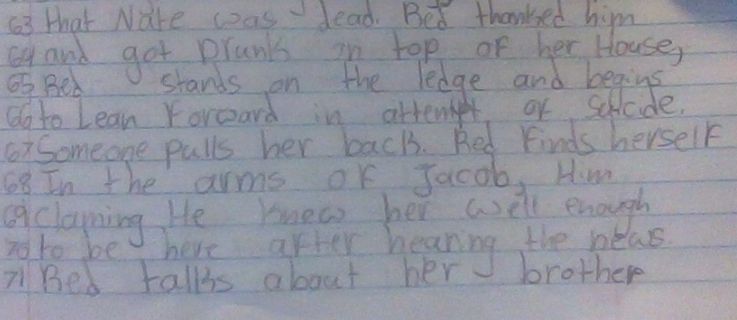 63 that Nate was dead. Bed thanked him
64 and got Drunk on top of her House,
65 Bed stands on the ledge and begins
66 to Lean Forward in attempt of Sucide.
67 Someone pulls her back. Bed Finds herself
68 In the arms of Jacob, Him
69 claming He knew her well enough
70 to be here after hearing the news
71 Bed talks about her brother